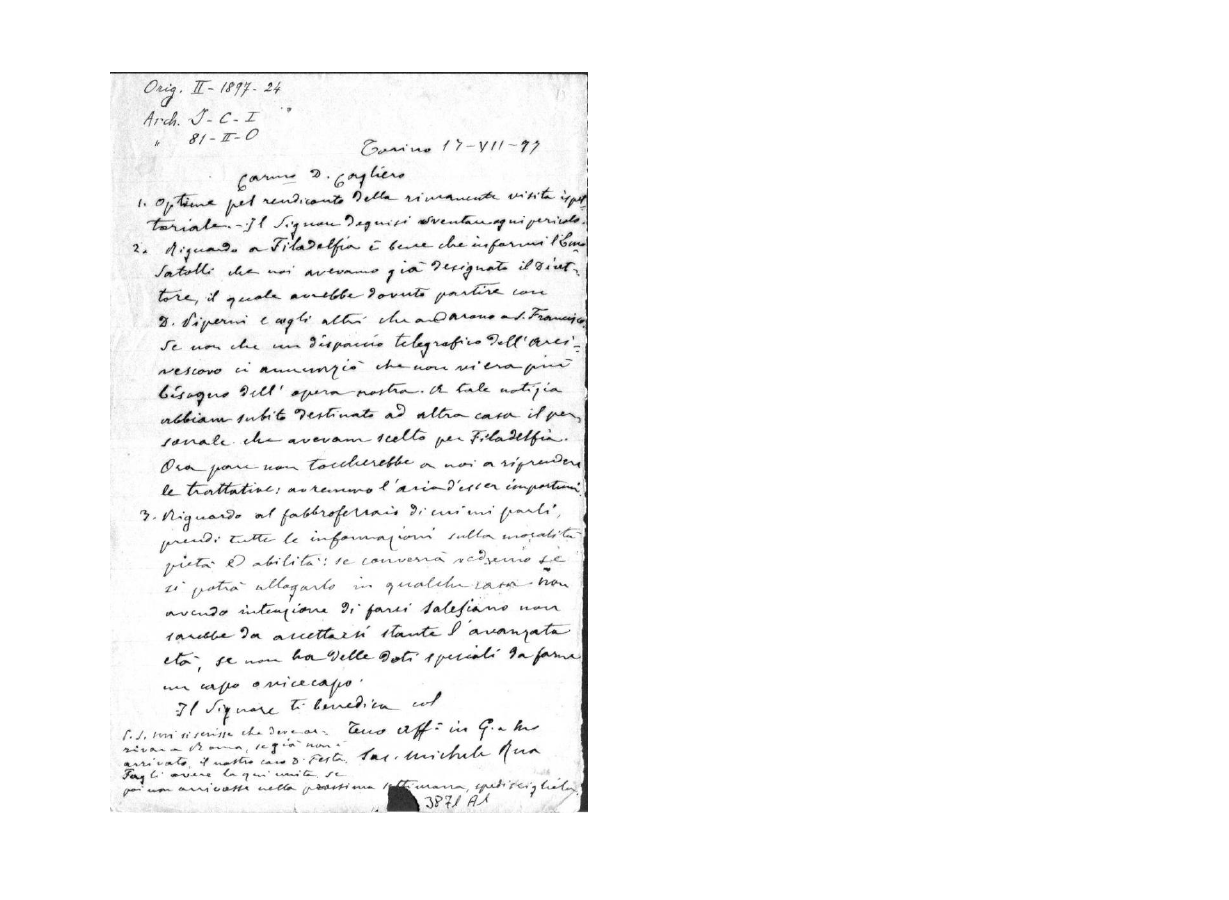 Orig. II - 1897 - 24
Arch. I - C - I
" 81 - II - O
Torino 17-VII-97
Carmo D. Cagliero
1. Optime pel rendiconto della rimanente visita ispet-
toriale. - Il Signore Degnisi sventare ogni pericolo.
2. Riguardo a Filadelfia è bene che informi l'Emo
Satolli che noi avevamo già designato il Diret-
tore, il quale avrebbe dovuto partire con
D. Piperni e cogli altri che andarono a S. Francisco.
Se non che un dispaccio telegrafico dell'Arci-
vescovo ci annunziò che non vi era più
bisogno dell' opera nostra. A tale notizia
abbiam subito destinato ad altra casa il per-
sonale che avevam scelto per Filadelfia.
Ora pare non toccherebbe a noi a riprendere
le trattative; avremmo l'aria d'esser importuni.
3. Riguardo al fabbroferraio di cui mi parli,
prendi tutte le informazioni sulla moralità
pietà ed abilità: se converrà vedremo se
si potrà allogarlo in qualche casa non
avendo intenzione di farsi Salesiano non
sarebbe da accettarsi stante l'avanzata
età, se non ha delle doti speciali da farne
un capo o vicecapo.
Il Signore ti benedica col
Tuo aff.º in G. e M.
Sac. Michele Rua
P.S. Mi si scrisse che deve ar-
rivare a Roma, se già non è
arrivato, il nostro caro D. Festa.
Fagli avere la qui unita, se
poi non arrivasse nella prossima settimana, spediscigliela.
3871 A1